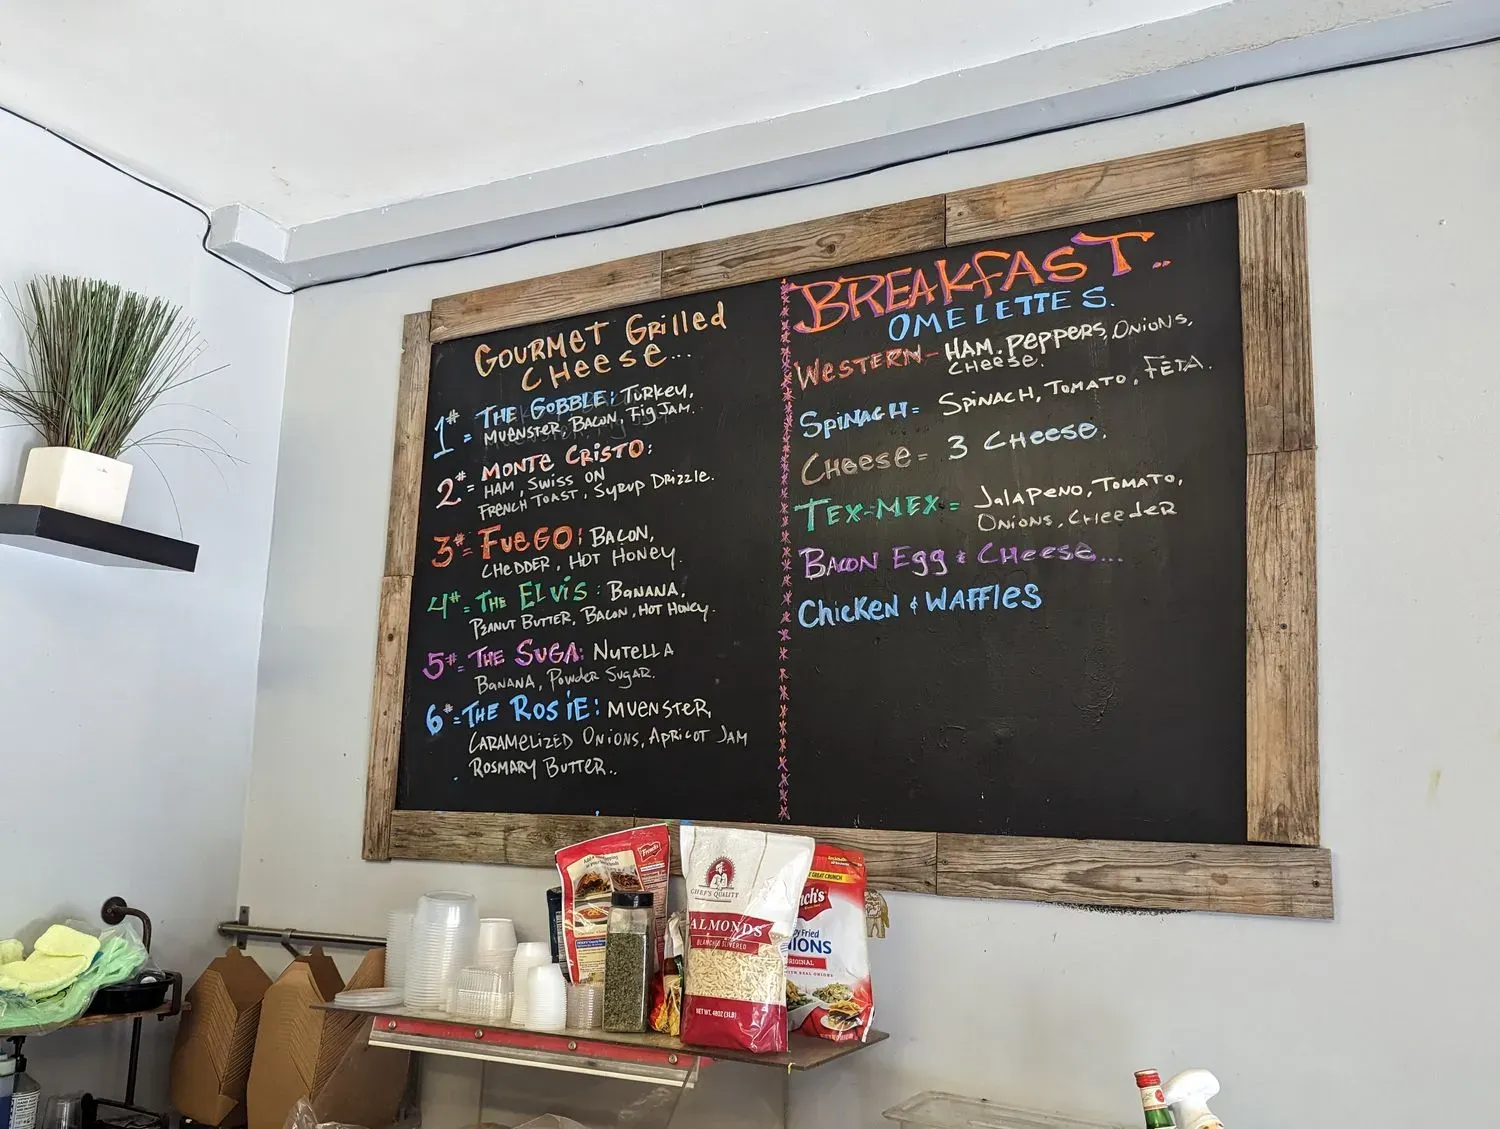 GOURMET Grilled
CHeese...
1# = THE GOBBLE: TURKEY,
MUENSTER, BACON, Fig JAM.
2# = MONTE CRISTO:
HAM, SWISS ON
FRENCH TOAST, SYRUP DRIZZLE.
3# = FUEGO: BACON,
CHEDDER, HOT HONEY.
4# = THE ELVIS: BANANA,
PEANUT BUTTER, BACON, HOT HONEY.
5# = THE SUGA: NUTELLA
BANANA, POWDER SUGAR.
6# = THE ROSIE: MUENSTER,
CARAMELIZED ONIONS, APRICOT JAM
ROSMARY BUTTER..
BREAKFAST..
OMELETTES.
WESTERN - HAM, PEPPERS, ONIONS,
CHEESE.
SPINACH = SPINACH, TOMATO, FETA.
CHEESE = 3 CHEESE.
TEX-MEX = JALAPENO, TOMATO,
ONIONS, CHEEDER
BACON Egg & CHEESE...
CHICKEN & WAFFLES
French's
CHEF'S QUALITY
ALMONDS
BLANCHED SLIVERED
NET WT. 48OZ (3LB)
GREAT CRUNCH
ch's
Fried
IONS
ORIGINAL
WITH REAL ONIONS